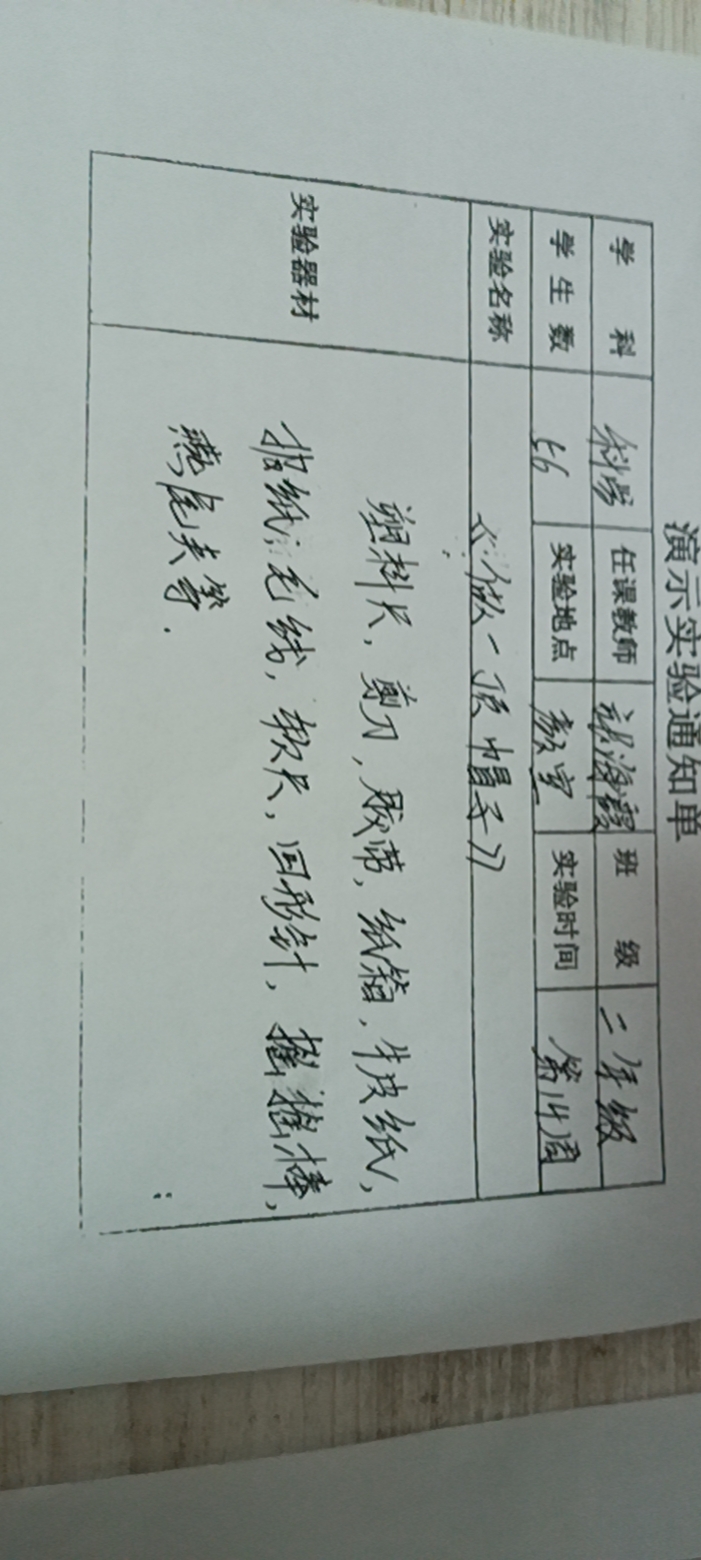 演示实验通知单
学 科 科学 任课教师 海霞 班 级 二年级
学生数 56 实验地点 教室 实验时间 第14周
实验名称 《做一顶帽子》
实验器材
塑料尺，剪刀，胶带，纸箱，牛皮纸，
报纸，毛线，软尺，回形针，摇摇棒，
燕尾夹等．